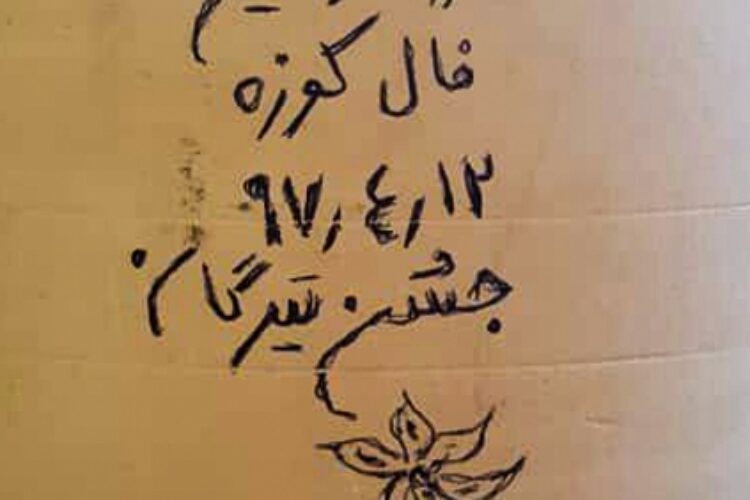 فال کوزه
۹۷٫٤٫۱۲
جشن تیرگان